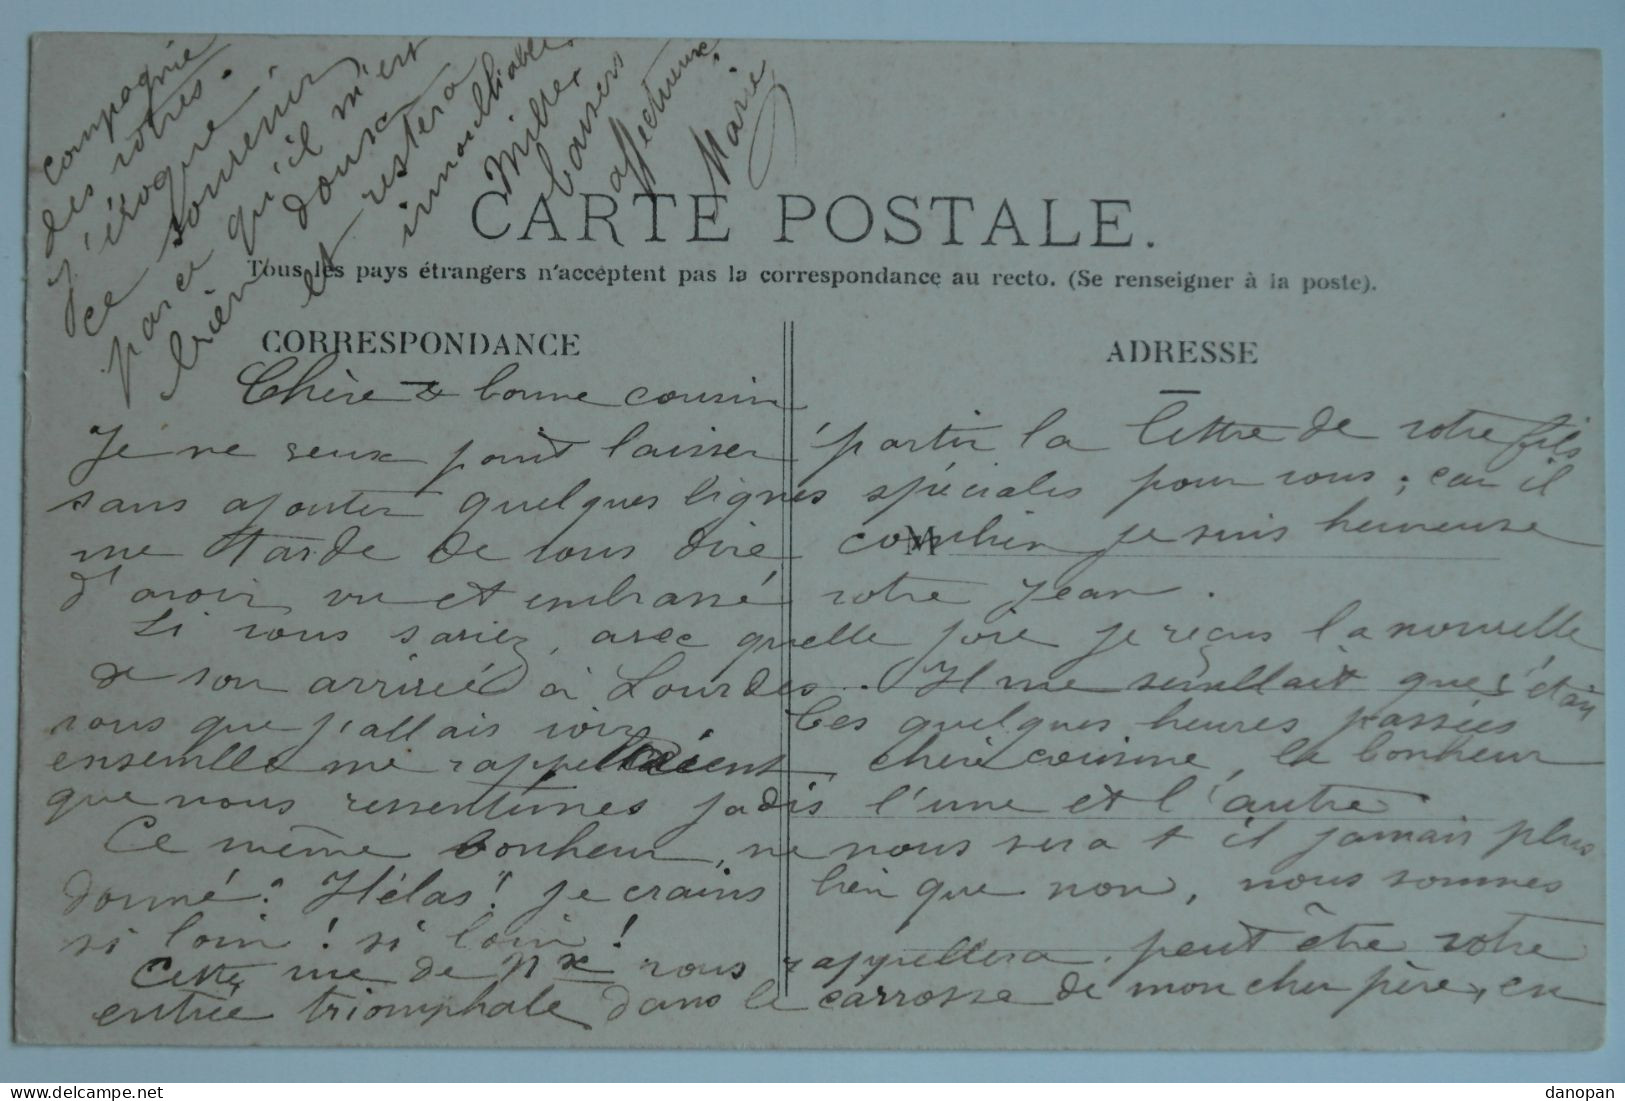 CARTE POSTALE.
Tous les pays étrangers n'acceptent pas la correspondance au recto. (Se renseigner à la poste).
CORRESPONDANCE
ADRESSE
Chère & bonne cousine
Je ne veux point laisser partir la lettre de votre fils
sans ajouter quelques lignes spéciales pour vous ; car il
me tarde de vous dire combien je suis heureuse
M
d'avoir vu et embrassé votre Jean.
Si vous saviez avec quelle joie je reçus la nouvelle
de son arrivée à Lourdes. Il me semblait que c'était
vous que j'allais voir. Ces quelques heures passées
ensemble me rappelaient, chère cousine, le bonheur
que nous ressentîmes jadis l'une et l'autre.
Ce même bonheur, ne nous sera t il jamais plus
donné ? Hélas ! je crains bien que non, nous sommes
si loin ! si loin !
Cette vue de vous rappellera peut être votre
entrée triomphale dans le carrosse de mon cher père, en
compagnie
des vôtres.
J'évoque
ce souvenir
parce qu'il m'est
bien doux
et restera
inoubliable.
Milles
baisers
affectueux.
Marie
danopan